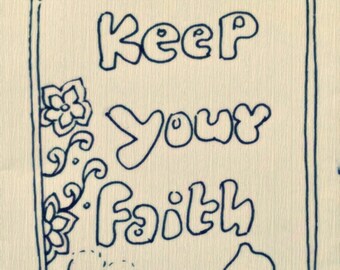 Keep
your
Faith